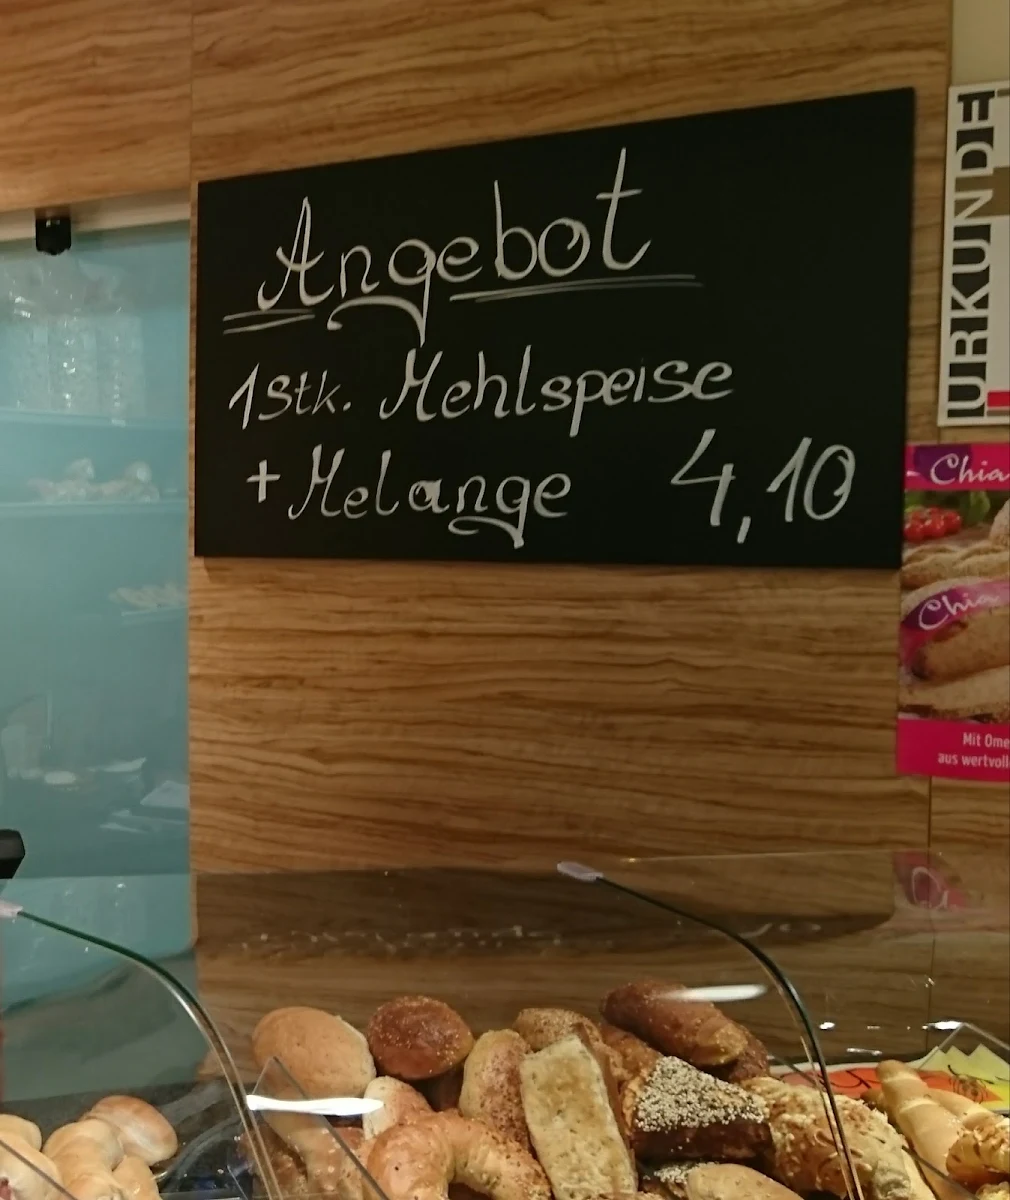 Angebot
1 Stk. Mehlspeise
+ Melange 4,10
URKUNDE
Chia
Chia
Mit Ome
aus wertvoll